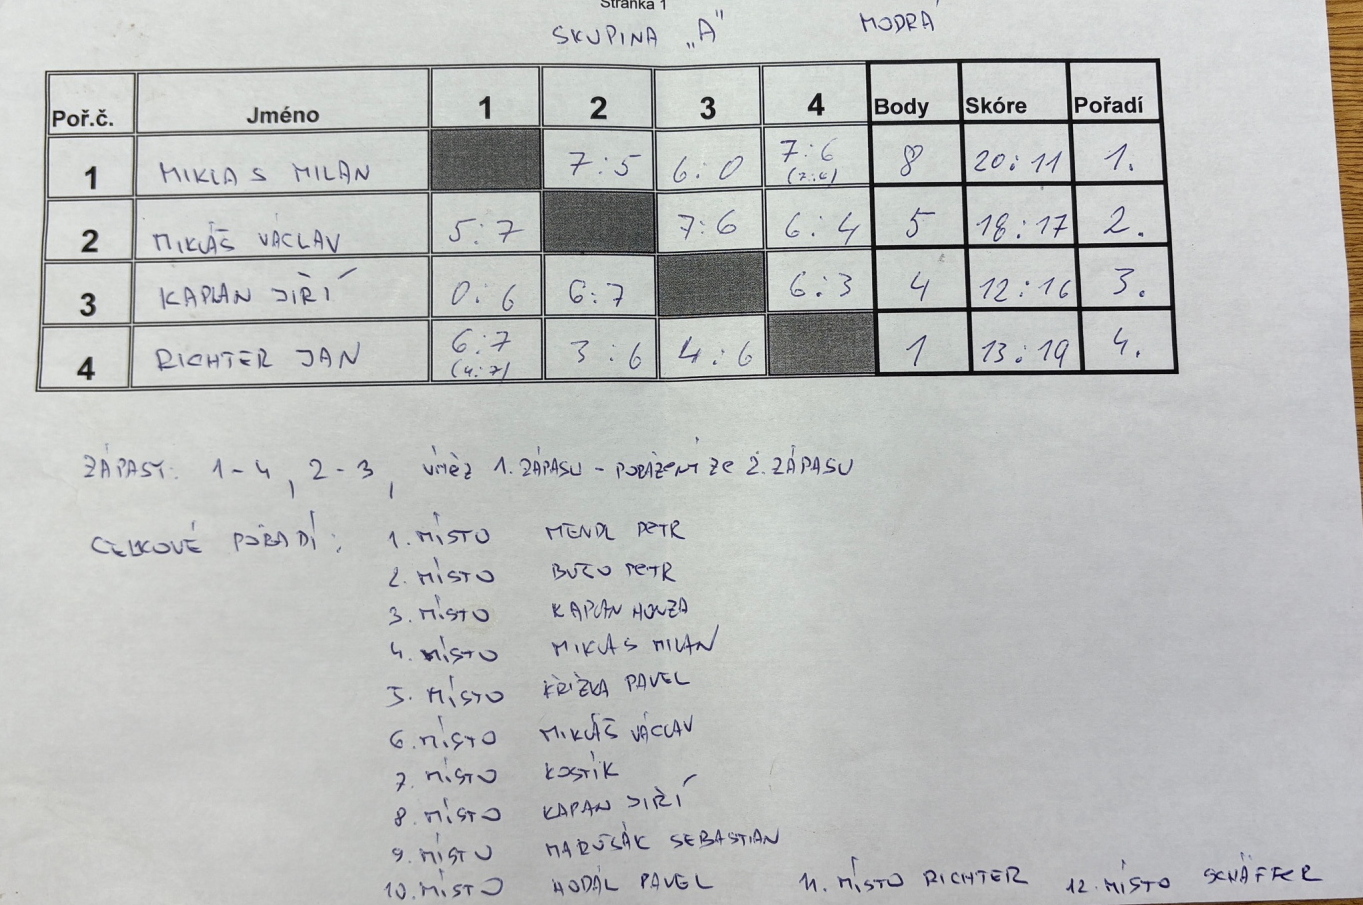 Stránka 1
SKUPINA „A" MODRÁ
Poř.č. Jméno 1 2 3 4 Body Skóre Pořadí
1 MIKLAS MILAN 7:5 6:0 7:6 (7:4) 8 20:11 1.
2 MIKLÁŠ VÁCLAV 5:7 7:6 6:4 5 18:17 2.
3 KAPLAN JIŘÍ 0:6 6:7 6:3 4 12:16 3.
4 RICHTER JAN 6:7 (4:7) 3:6 4:6 1 13:19 4.
ZÁPASY: 1-4, 2-3, VÍTĚZ 1. ZÁPASU - PORAŽENÝ ZE 2. ZÁPASU
CELKOVÉ POŘADÍ: 1. MÍSTO MENDL PETR
2. MÍSTO PETR
3. MÍSTO KAPLAN HONZA
4. MÍSTO MIKLAS MILAN
5. MÍSTO KŘIŽKA PAVEL
6. MÍSTO MIKLÁŠ VÁCLAV
7. MÍSTO KOSTÍK
8. MÍSTO KAPAN JIŘÍ
9. MÍSTO SEBASTIAN
10. MÍSTO HODÁL PAVEL 11. MÍSTO RICHTER 12. MÍSTO SCHÄFFER